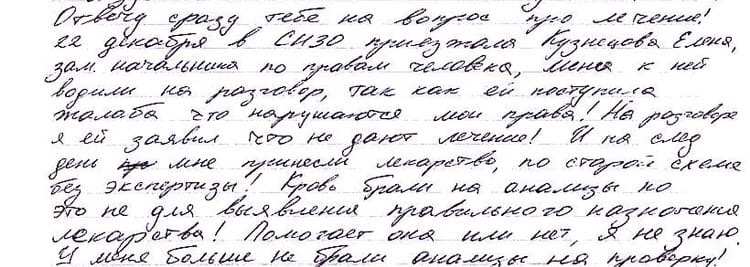 Отвечу сразу тебе на вопрос про лечение!
22 декабря в СИЗО приезжала Кузнецова Елена,
зам. начальника по правам человека, меня к ней
водили на разговор, так как ей поступила
жалоба что нарушаются мои права! На разговоре
я ей заявил что не дают лечение! И на след
день мне принесли лекарство, по старой схеме
без экспертизы! Кровь брали на анализы но
это не для выявления правильного назначения
лекарства! Помогает она или нет, я не знаю.
И меня больше не брали анализы на проверку!